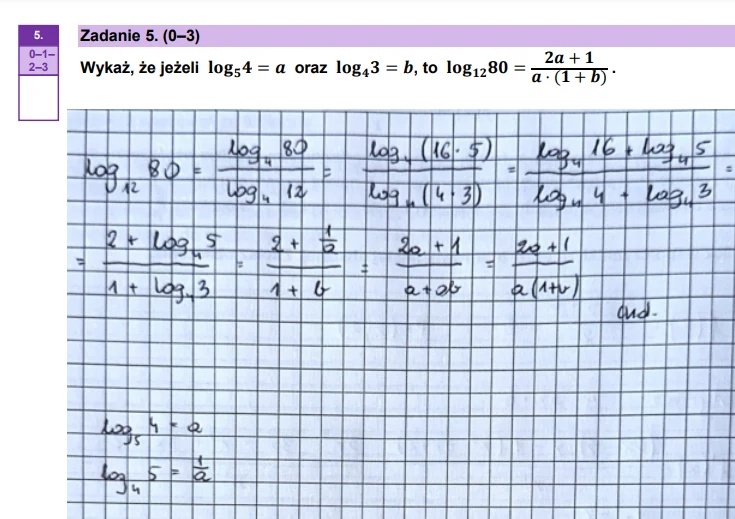 5.
0–1–
2–3
Zadanie 5. (0–3)
Wykaż, że jeżeli log₅4 = a oraz log₄3 = b, to log₁₂80 = (2a + 1)/(a · (1 + b)) .
log₁₂ 80 = (log₄ 80)/(log₄ 12) = (log₄ (16·5))/(log₄ (4·3)) = (log₄ 16 + log₄ 5)/(log₄ 4 + log₄ 3) =
= (2 + log₄ 5)/(1 + log₄ 3) = (2 + 1/a)/(1 + b) = (2a + 1)/(a + ab) = (2a + 1)/(a(1+b))
cnd.
log₅ 4 = a
log₄ 5 = 1/a